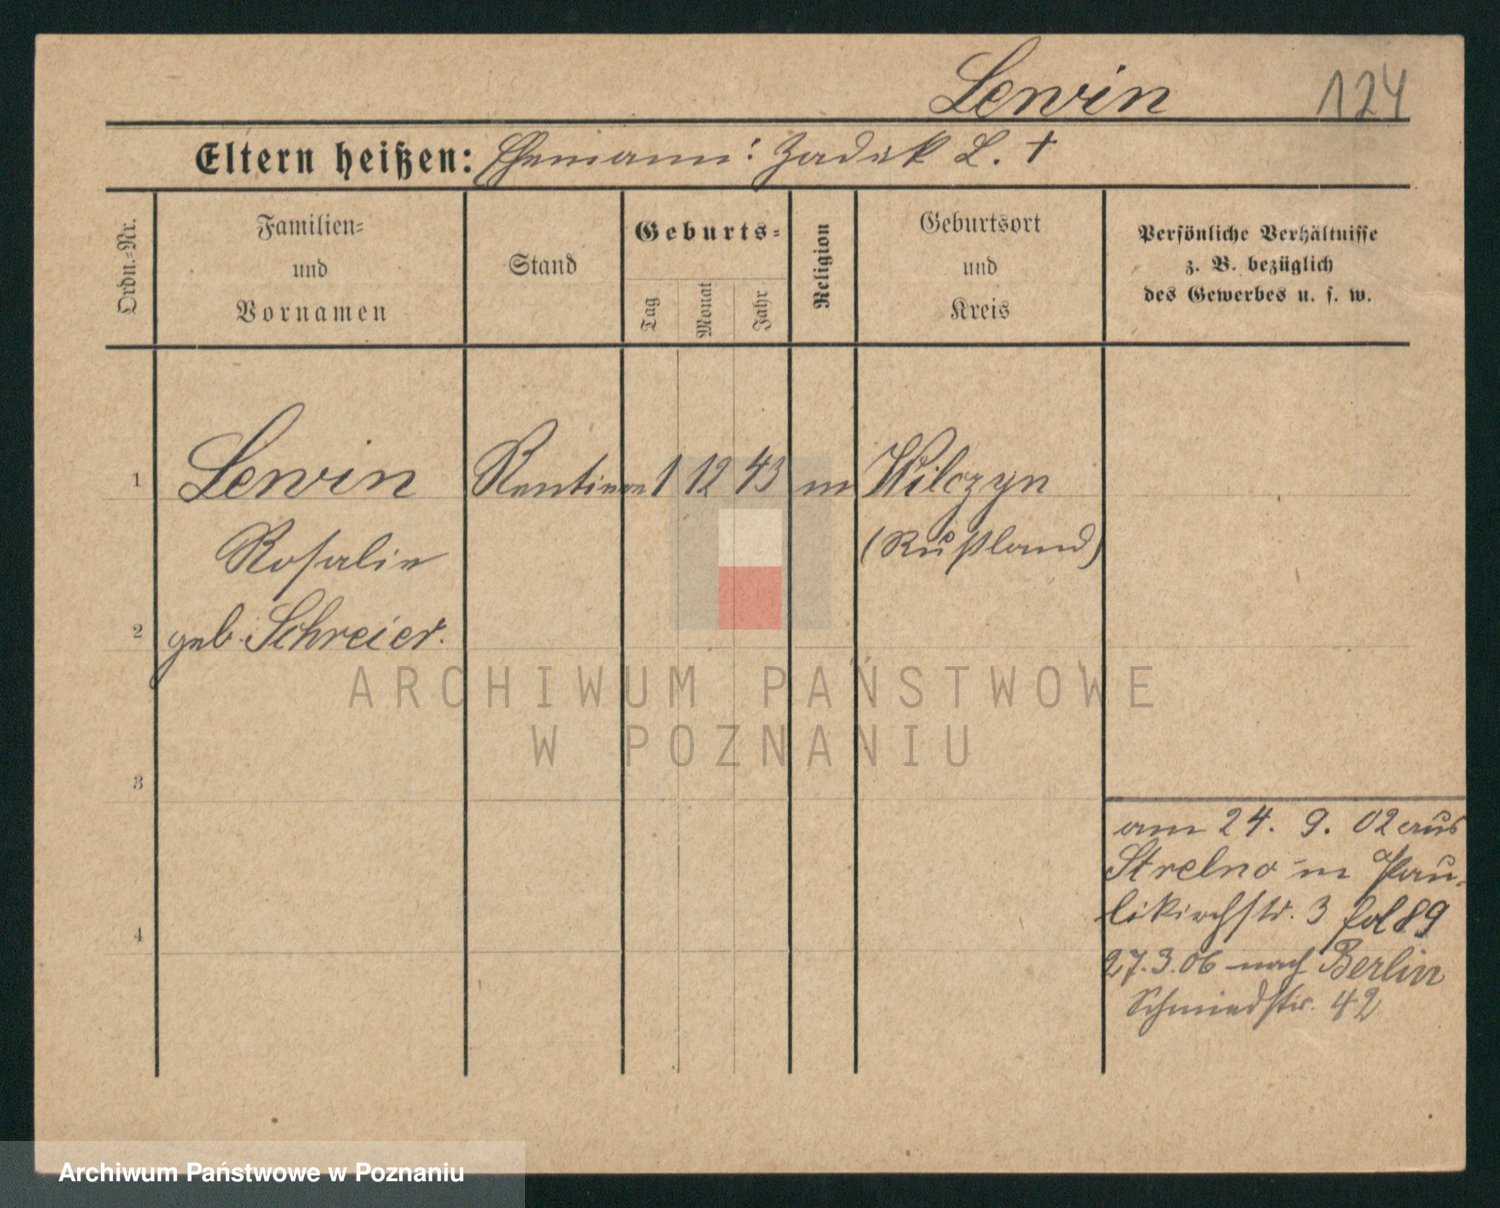 Lewin 124
Eltern heißen: Ehemann: Zadek L. +
Ordn.-Nr.
Familien-
und
Vornamen
Stand
Geburts-
Tag
Monat
Jahr
Religion
Geburtsort
und
Kreis
Persönliche Verhältnisse
z. B. bezüglich
des Gewerbes u. s. w.
1 Lewin Rentiere 1 12 43 m Wilczyn
Rosalie (Rußland)
2 geb. Schreier.
ARCHIWUM PAŃSTWOWE
W POZNANIU
3
am 24. 9. 02 aus
Strelno in Pau-
likirchstr. 3 fol 89
4
27.3.06 nach Berlin
Schmiedstr. 42
Archiwum Państwowe w Poznaniu